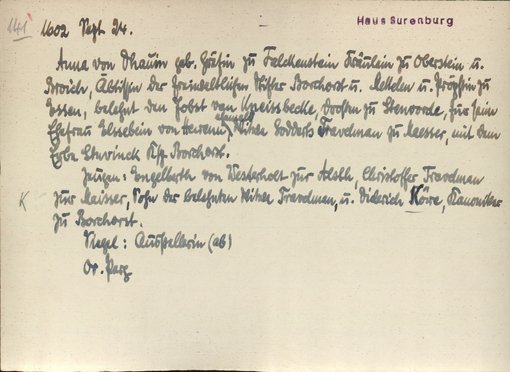 141 1602 Sept 24. Haus Surenburg
Anna von Dhaun geb. Gräfin zu Falckenstein Fräulein zu Oberstein u.
Broich, Äbtissin der freiweltlichen Stifter Borchorst u. Metelen u. Pröpstin zu
Essen, belehnt den Jobst von, Drosten zu Stenvorde, für seine
Ehefrau Elssebein von, Witwe Frawdman zu Maesser, mit dem
Erbe Ksp. Borchorst.
Zeugen: Engelberth von Westerholt zur Alsth, Christoffer Trawdman
K zur Maisser, Sohn der belehnten Witwe Trawdman, u. Diderich Köire, Kanoniker
zu Borchorst.
Siegel: Ausstellerin (ab)
Or. Perg